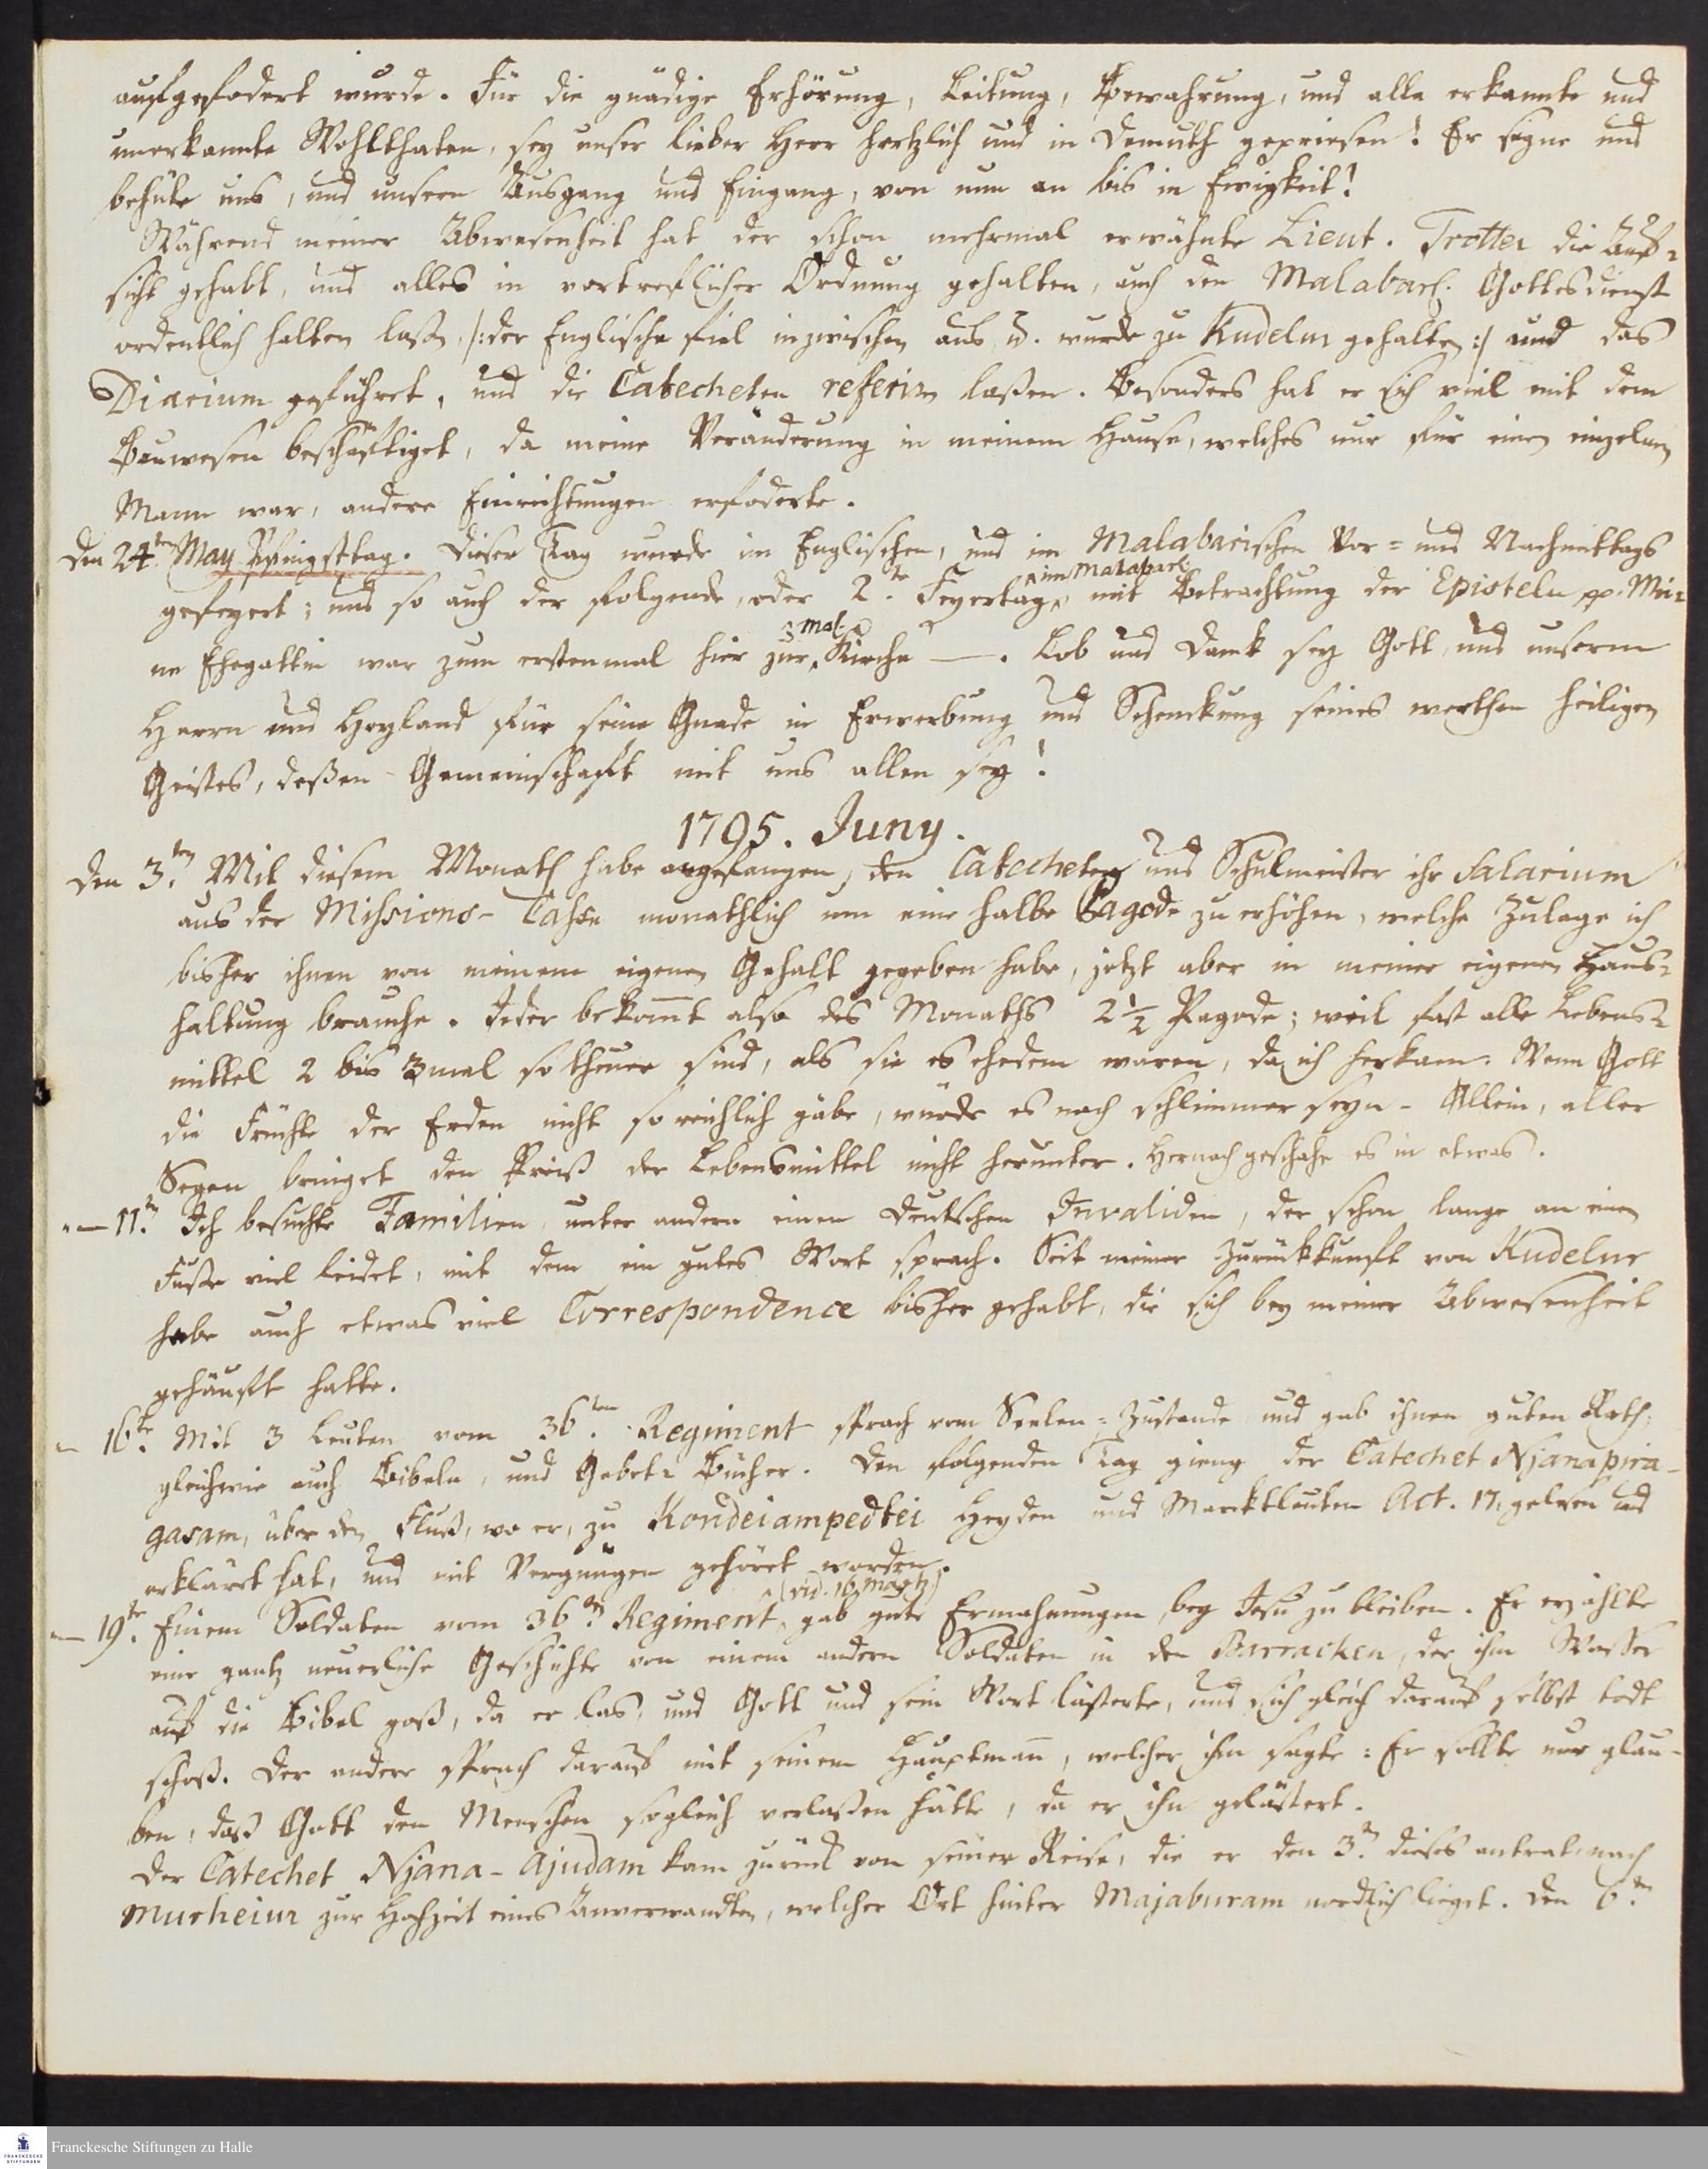 aufgefodert wurde. Für die gnädige Erhörung, Leitung, Bewahrung, und alle erkannte und
unerkannte Wohlthaten, sey unser lieber Herr hertzlich und in Demuth gepriesen! Er segne und
behüte uns, und unsern Ausgang und Eingang, von nun an bis in Ewigkeit!
Während meiner Abwesenheit hat der schon mehrmal erwähnte Lieut. Trotter die Auf=
sicht gehabt, und alles in vortreflicher Ordnung gehalten, auch den Malabarl. Gottesdienst
ordentlich halten laßen /: der Englische fiel inzwischen aus, u. wurde zu Kudelur gehalten :/ und das
Diarium geführet, und die Catecheten referiren laßen. Besonders hat er sich viel mit dem
Bauwesen beschäftiget, da meine Veränderung in meinem Hause, welches nur für einen einzelnen
Mann war, andere Einrichtungen erfoderte.
Den 24ten May Pfingsttag. Dieser Tag wurde im Englischen, und im Malabarischen Vor= und Nachmittags
gefeyert; und so auch der folgende, oder 2te Feyertag, im Malabarl. mit Betrachtung der Episteln pp. Mei=
ne Ehegattin war zum erstenmal hier zur 3 mal Kirche —. Lob und Dank sey Gott, und unserm
Herrn und Heyland für seine Gnade in Erwerbung und Schenckung seines werthen heiligen
Geistes, deßen Gemeinschafft mit uns allen sey!
1795. Juny.
Den 3ten Mit diesem Monath habe angefangen, den Catecheten und Schulmeister ihr Salarium
aus der Missions-Casse monathlich um eine halbe Pagode zu erhöhen, welche Zulage ich
bisher ihnen von meinem eigenen Gehalt gegeben habe, jetzt aber in meiner eigenen Haus=
haltung brauche. Jeder bekommt also des Monaths 2 1/2 Pagode; weil fast alle Lebens=
mittel 2 bis 3mal so theuer sind, als sie es ehedem waren, da ich herkam. Wenn Gott
die Früchte der Erden nicht so reichlich gäbe, würde es noch schlimmer seyn - Allein, aller
Segen bringet den Preiß der Lebensmittel nicht herunter. Hernach geschahe es in etwas.
— 11ten Ich besuchte Familien, unter andern einen deutschen Invaliden, der schon lange an einem
Fuße viel leidet, mit dem ein gutes Wort sprach. Seit meiner Zurückkunft von Kudelur
habe auch etwas viel Correspondence bisher gehabt, die sich bey meiner Abwesenheit
gehäufft hatte.
— 16te. Mit 3 Leuten vom 36ten Regiment sprach vom Seelen=Zustande und gab ihnen guten Rath,
gleichwie auch Bibeln, und Gebet=Bücher. Den folgenden Tag gieng der Catechet Njanapira-
gasam, über den Fluß, wo er, zu Kondeiampedtei Heyden und Marcktleuten Act. 17. gelesen und
erkläret hat, und mit Vergnügen gehöret worden.
— 19te. Einem Soldaten vom 36ten Regiment (vid. 16 Martz) gab gute Ermahnungen, bey Jesu zu bleiben. Er erzählte
eine gantz neuerliche Geschichte von einem andern Soldaten in den Barracken, der ihm Waßer
auf die Bibel goß, da er las, und Gott und sein Wort lästerte, und sich gleich darauf selbst todt
schoß. Der andere sprach darauf mit seinem Hauptmann, welcher ihm sagte: Er sollte nur glau-
ben, daß Gott den Menschen sogleich verlaßen hätte, da er ihn gelästert.
Der Catechet Njana-Ajudam kam zurück von seiner Reise, die er den 3ten dieses antrat nach
Murheiur zur Hochzeit eines Anverwandten, welcher Ort hinter Majaburam nordlich lieget. Den 6ten
Franckesche Stiftungen zu Halle
FRANCKESCHE
STIFTUNGEN